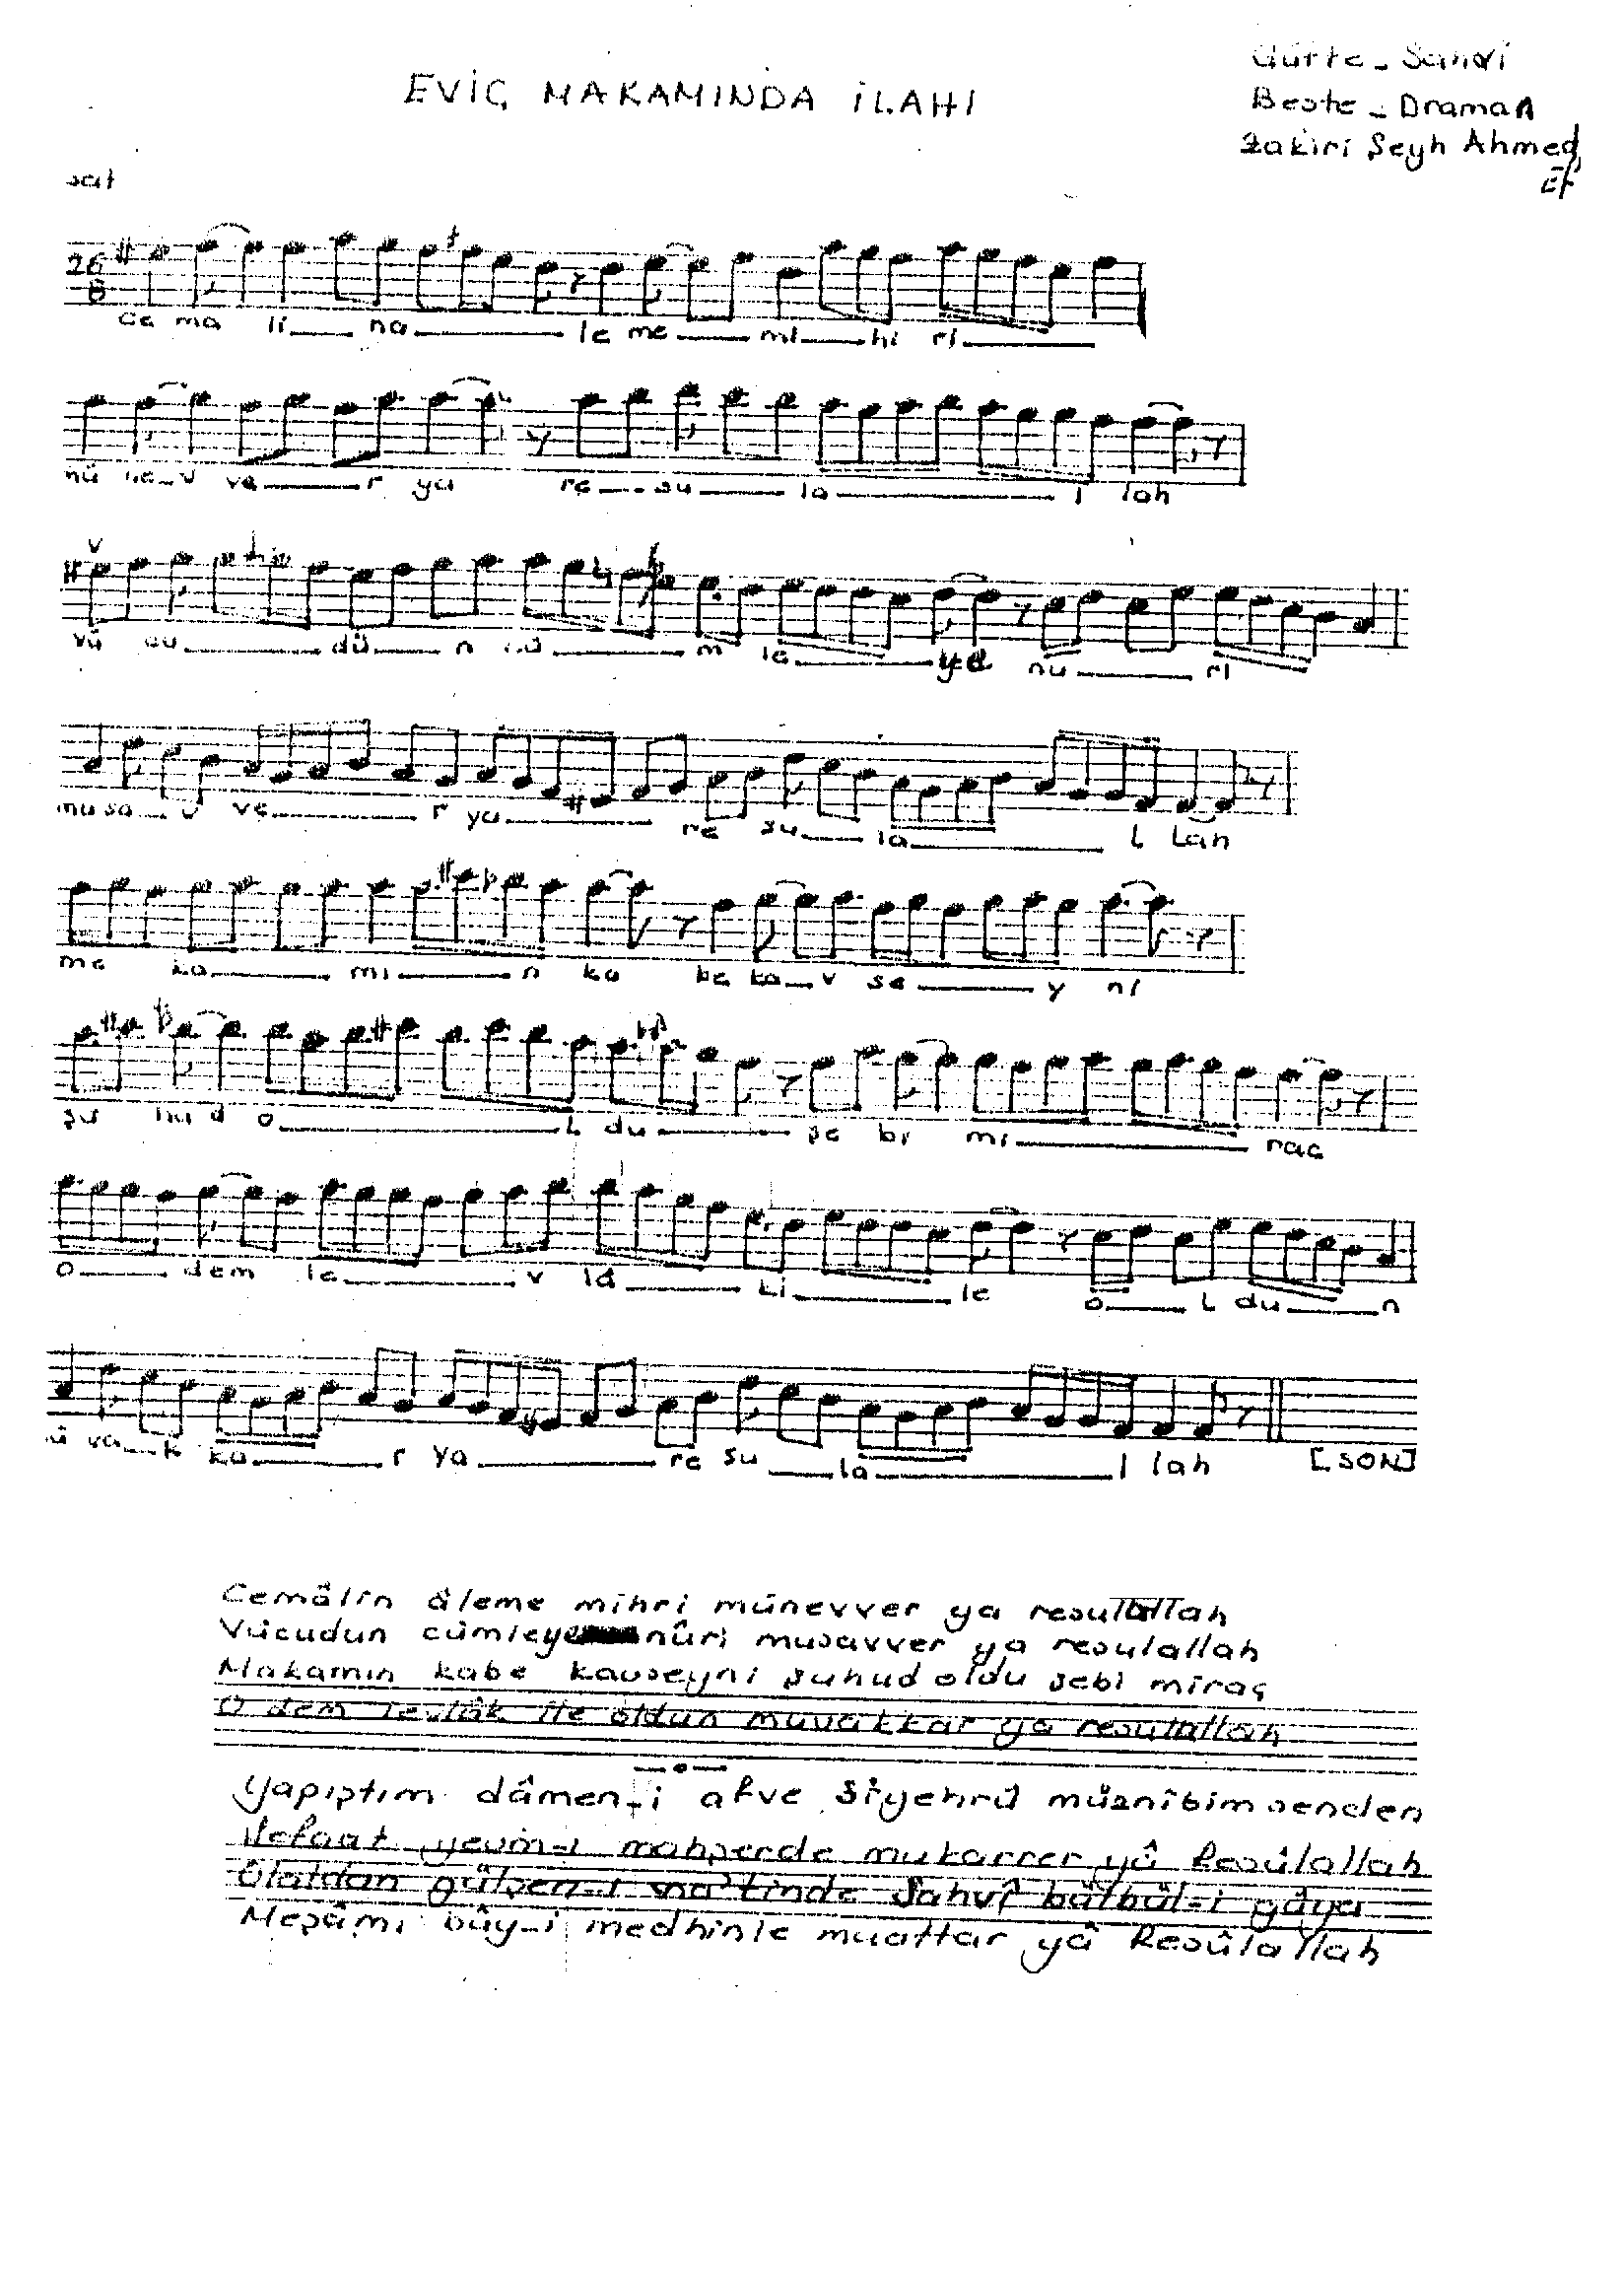 EVİÇ MAKAMINDA İLAHİ
Gürte - Sahvi
Beste - Draman
Zakiri Şeyh Ahmed
Ef
26
8
ce ma li na le me mi hi ri
nü ne v ve r ya re su la l lah
vü cu dü n cü m le ye nu ri
mu sa v ve r ya re su la l Lah
ma ka mi n ka be ka v se y ni
şu hu d o l du şe bi mi rac
o dem le v la ki le o l du n
mü va k ka r ya re su la l lah [SON]
Cemâlin âleme mihri münevver ya resulallah
Vücudun cümleye nûri musavver ya resulallah
Makamın kabe kavseyni şuhud oldu şebi miraç
O dem levlâk ile oldun muvakkar ya resulallah
Yapıştım dâmen-i afve Siyehrû müznîbim senden
Şefaat yevm-i mahşerde mukarrer yâ Resûlallah
Olaldan gülşen-i na'tinde Sahvî bülbül-i gûya
Meşâmı bûy-i medhinle muattar yâ Resûlallah